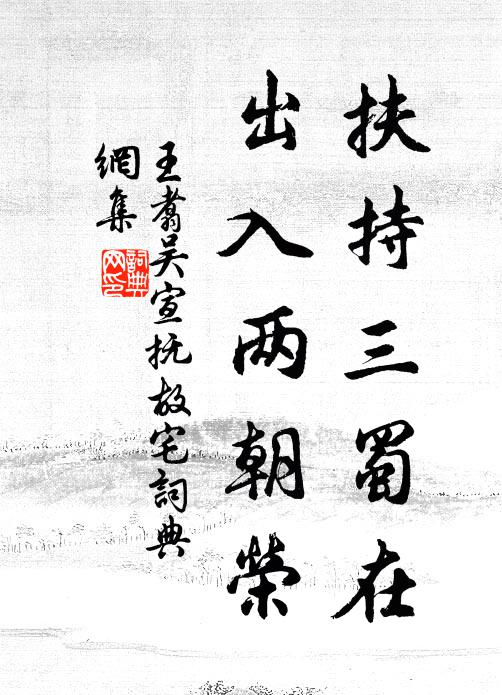 扶持三蜀在
出入两朝榮
王翥吴宣抚故宅詞典
網集
詞典
网印